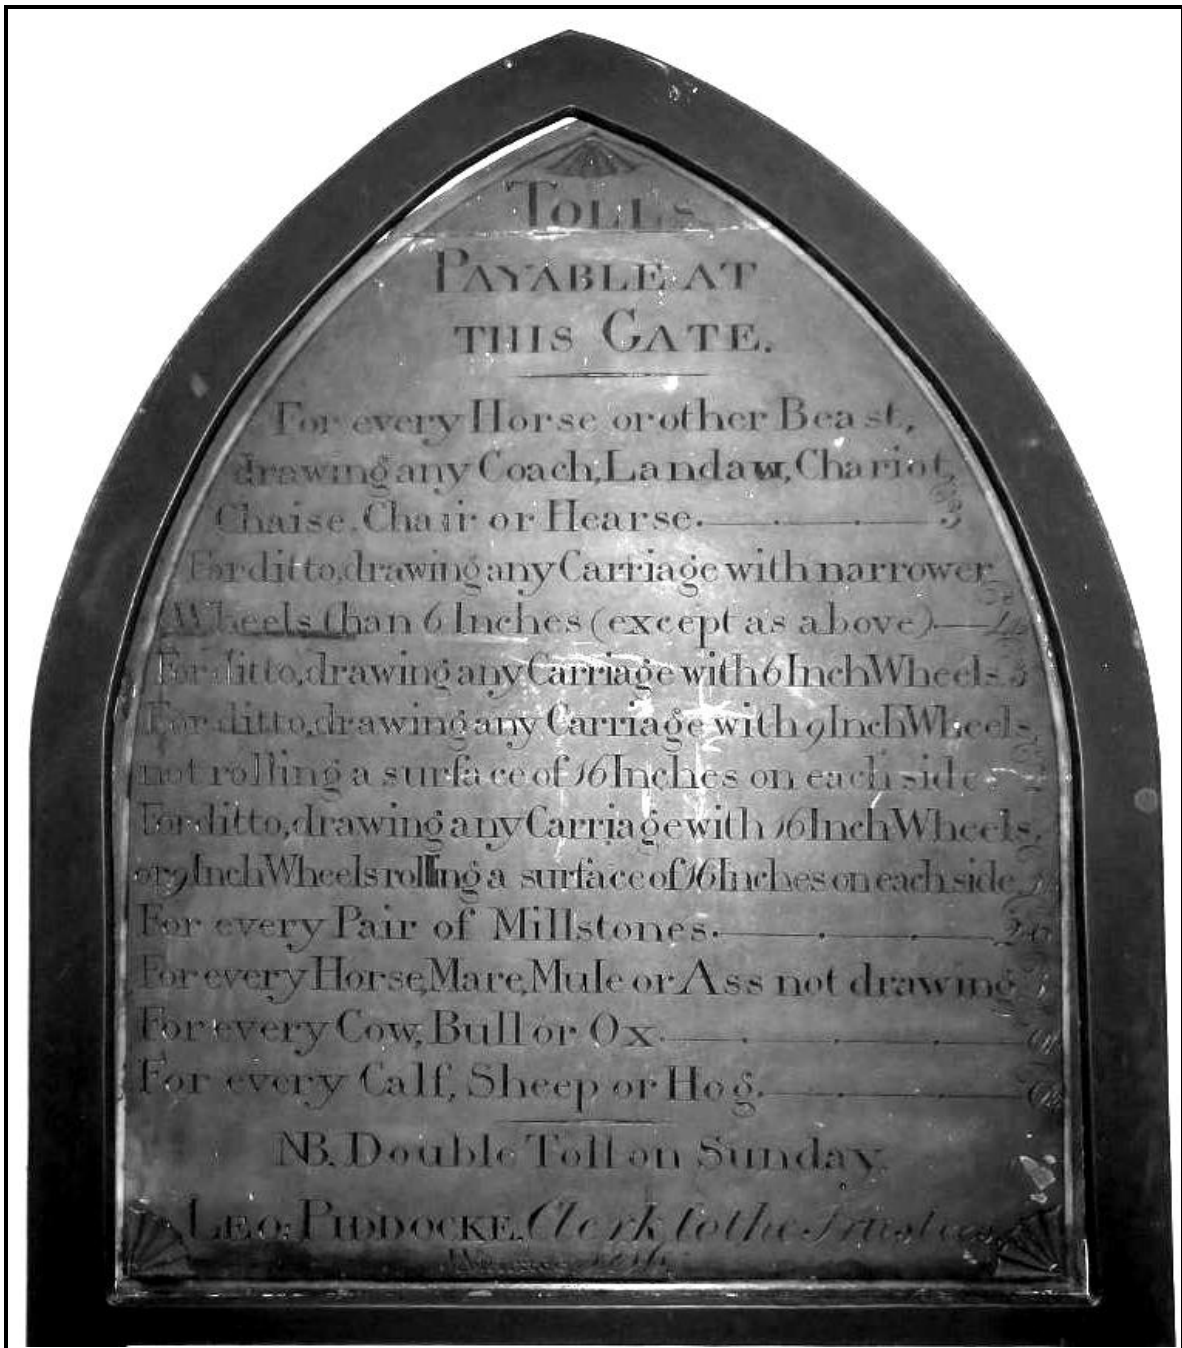 TOLLS
PAYABLE AT
THIS GATE.
For every Horse or other Beast,
drawing any Coach, Landaw, Chariot,
Chaise, Chair or Hearse.
For ditto, drawing any Carriage with narrower
Wheels than 6 Inches (except as above)
For ditto, drawing any Carriage with 6 Inch Wheels 3
For ditto, drawing any Carriage with 9 Inch Wheels,
not rolling a surface of 16 Inches on each side
For ditto, drawing any Carriage with 16 Inch Wheels,
or 9 Inch Wheels rolling a surface of 16 Inches on each side
For every Pair of Millstones.
For every Horse, Mare, Mule or Ass not drawing
For every Cow, Bull or Ox.
For every Calf, Sheep or Hog.
NB. Double Toll on Sunday.
LEO: PIDDOCKE, Clerk to the Trustees